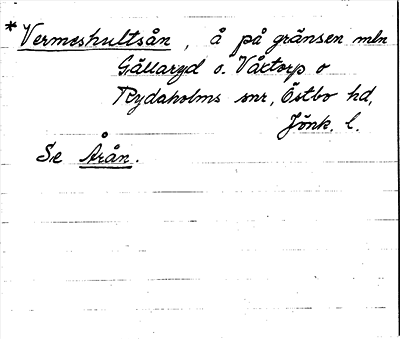 * Vermeshultsån, å på gränsen mln
Gällaryd o. Våxtorp o
Rydaholms snr, Östbo hd,
Jönk. l.
Se Årån.